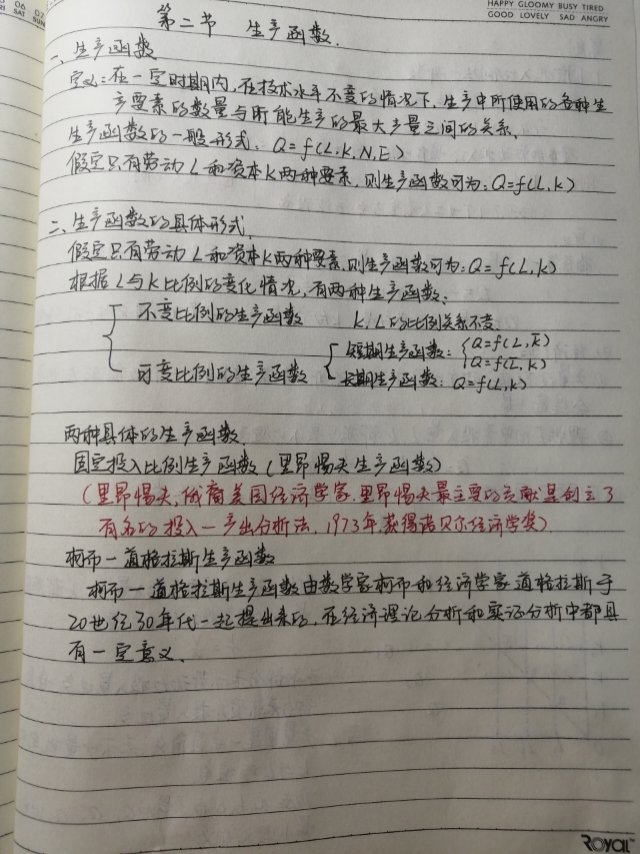 06 07
SAT SUN
HAPPY GLOOMY BUSY TIRED
GOOD LOVELY SAD ANGRY
第二节 生产函数.
一、生产函数
定义:在一定时期内,在技术水平不变的情况下,生产中所使用的各种生
产要素的数量与所能生产的最大产量之间的关系.
生产函数的一般形式: Q=f(L.K,N,E)
假定只有劳动L和资本K两种要素,则生产函数可为:Q=f(L,K)
二、生产函数的具体形式.
假定只有劳动L和资本K两种要素,则生产函数可为:Q=f(L,K)
根据L与K比例的变化情况,有两种生产函数:
不变比例的生产函数 K、L的比例关系不变.
可变比例的生产函数 短期生产函数: Q=f(L,K̅)
Q=f(L̅,K)
长期生产函数: Q=f(L,K)
两种具体的生产函数.
固定投入比例生产函数(里昂惕夫生产函数)
(里昂惕夫,俄裔美国经济学家.里昂惕夫最主要的贡献是创立了
有名的投入一产出分析法,1973年,获得诺贝尔经济学奖)
柯布一道格拉斯生产函数
柯布一道格拉斯生产函数由数学家柯布和经济学家道格拉斯于
20世纪30年代一起提出来的,在经济理论分析和实证分析中都具
有一定意义.
ROYAL